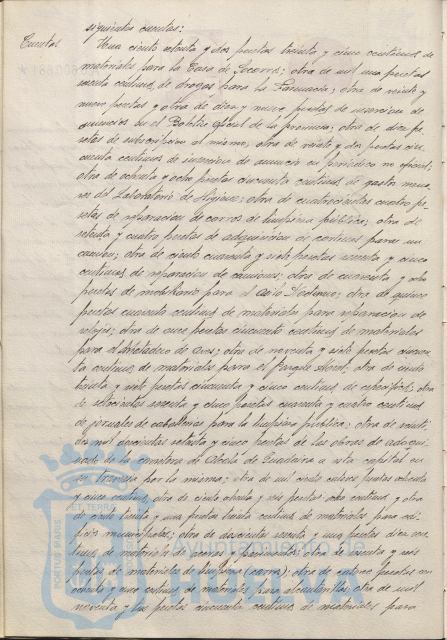 siguientes cuentas:
Cuentas Una ciento ochenta y dos pesetas treinta y cinco centimos de
materiales para la Casa de Socorro; otra de mil una pesetas
centimos, de drogas para la Farmacia; otra de veinte y
nueve pesetas y otra de diez y nueve pesetas de insercion de
anuncios en el Boletin oficial de la provincia; otra de diez pe-
setas de subscripcion al mismo; otra de veinte y dos pesetas cin-
cuenta centimos de insercion de anuncio en periodico no oficial;
otra de ochenta y ocho pesetas cincuenta centimos de gastos meno-
res del Laboratorio de Higiene; otra de cuatrocientas cuatro pe-
setas de reparacion de carros de limpieza publica; otra de
setenta y cuatro pesetas de adquisicion de correas para un
camion; otra de ciento cuarenta y siete pesetas setenta y cinco
centimos de reparacion de camiones; otra de cuarenta y ocho
pesetas de mobiliario para el; otra de quince
pesetas cuarenta centimos de materiales para reparacion de
relojes; otra de once pesetas cincuenta centimos de materiales
para el Matadero de aves; otra de noventa y siete pesetas cuaren-
ta centimos, de materiales para el Parque; otra de ciento
treinta y siete pesetas cincuenta y cinco centimos de; otra
de setecientas sesenta y cinco pesetas cuarenta y cuatro centimos
de jornales de caballerias para la limpieza publica; otra de veinti-
dos mil doscientas setenta y cinco pesetas de las obras de adoqui-
nado de la carretera de Alcalá de Guadaira a esta capital en
su travesia por la misma; otra de mil ciento catorce pesetas ochenta
y cinco centimos, otra de ciento ochenta y seis pesetas ocho centimos y otra
de ciento treinta y una pesetas treinta centimos de materiales para edi-
ficios municipales; otra de doscientas sesenta y una pesetas diez cen-
timos, de materiales de aceras y pavimentos; otra de treinta y seis
pesetas de materiales de limpieza (carros); otra de catorce pesetas no-
venta y cinco centimos, de materiales para alcantarillas; otra de mil
noventa y tres pesetas cincuenta centimos de materiales para
ET TERRAE
PORTUS MARIS
Ayuntamiento de
HUELVA